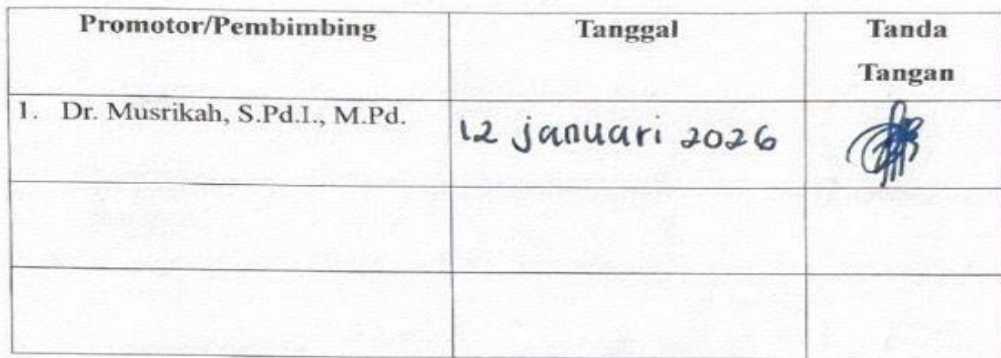 Promotor/Pembimbing Tanggal Tanda
Tangan
1. Dr. Musrikah, S.Pd.I., M.Pd. 12 januari 2026